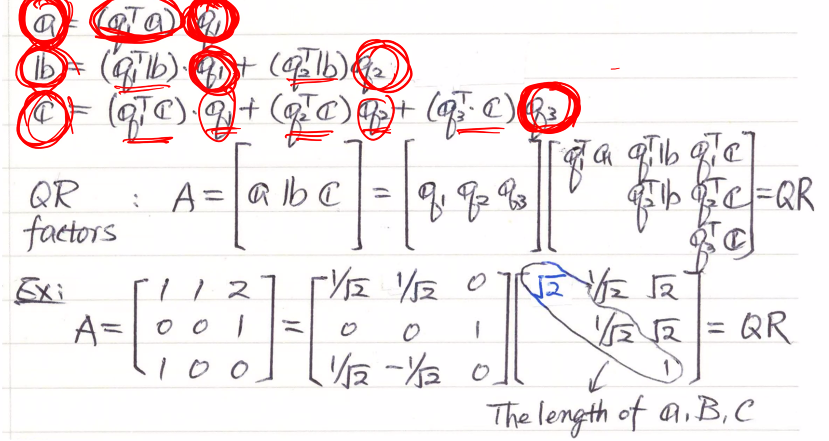 a = (q₁ᵀa) q₁
b = (q₁ᵀb)·q₁ + (q₂ᵀb) q₂
c = (q₁ᵀc)·q₁ + (q₂ᵀc) q₂ + (q₃ᵀ·c) q₃
QR factors : A = [a b c] = [q₁ q₂ q₃] [q₁ᵀa q₁ᵀb q₁ᵀc
q₂ᵀb q₂ᵀc
q₃ᵀc] = QR
Ex:
A = [1 1 2 = [1/√2 1/√2 0 [√2 1/√2 √2
0 0 1 0 0 1 1/√2 √2 = QR
1 0 0] 1/√2 -1/√2 0] 1]
The length of a, B, C